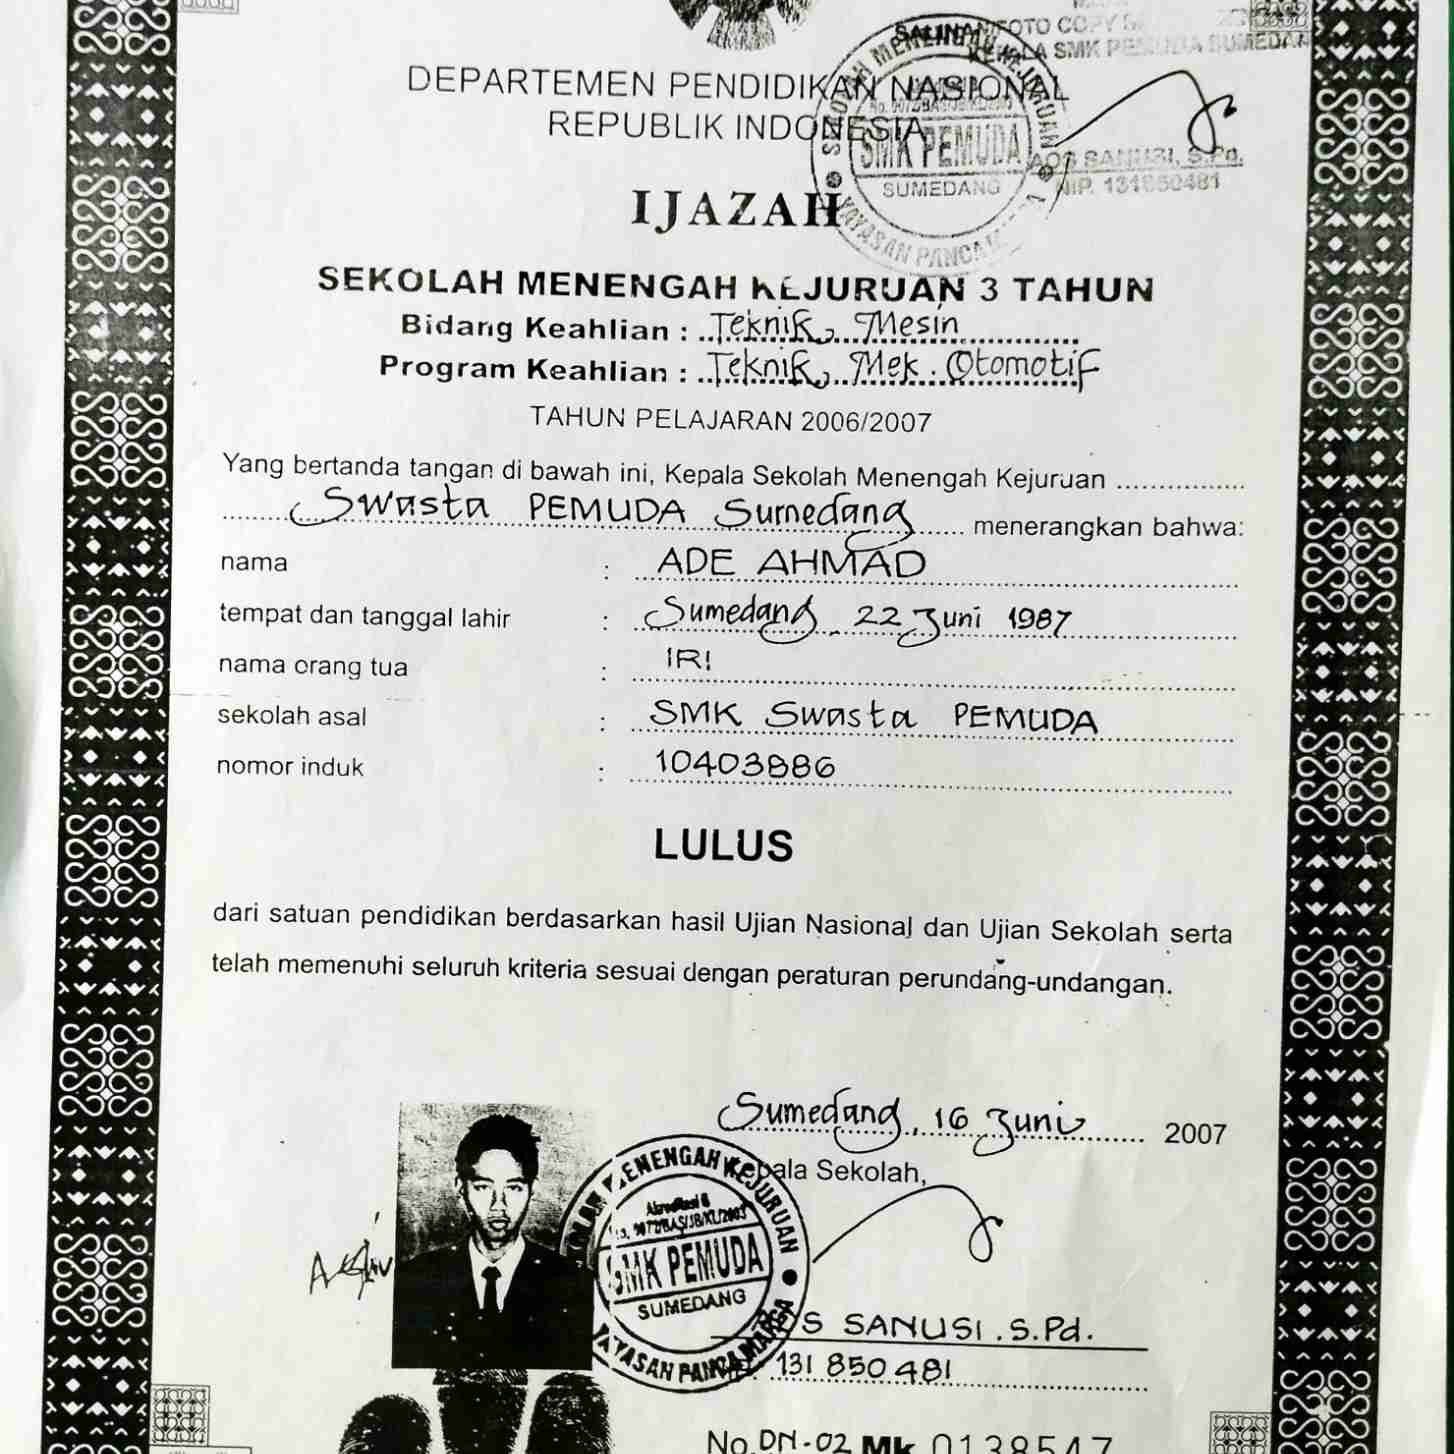 SALINAN FOTO COPY
KEPALA SMK PEMUDA SUMEDANG
DEPARTEMEN PENDIDIKAN NASIONAL
REPUBLIK INDONESIA
SEKOLAH MENENGAH KEJURUAN
SMK PEMUDA
SUMEDANG
YAYASAN PANCA
AOS SANUSI, S.Pd.
NIP. 131850481
IJAZAH
SEKOLAH MENENGAH KEJURUAN 3 TAHUN
Bidang Keahlian : Teknik Mesin
Program Keahlian : Teknik Mek. Otomotif
TAHUN PELAJARAN 2006/2007
Yang bertanda tangan di bawah ini, Kepala Sekolah Menengah Kejuruan
Swasta PEMUDA Sumedang menerangkan bahwa:
nama : ADE AHMAD
tempat dan tanggal lahir : Sumedang, 22 Juni 1987
nama orang tua : IRI
sekolah asal : SMK Swasta PEMUDA
nomor induk : 10403886
LULUS
dari satuan pendidikan berdasarkan hasil Ujian Nasional dan Ujian Sekolah serta
telah memenuhi seluruh kriteria sesuai dengan peraturan perundang-undangan.
Sumedang, 16 Juni 2007
Kepala Sekolah,
MENENGAH KEJURUAN
SMK PEMUDA
SUMEDANG
YAYASAN PANCA MARGA
S SANUSI.S.Pd.
131 850 481
No.DN-02 Mk 0138547